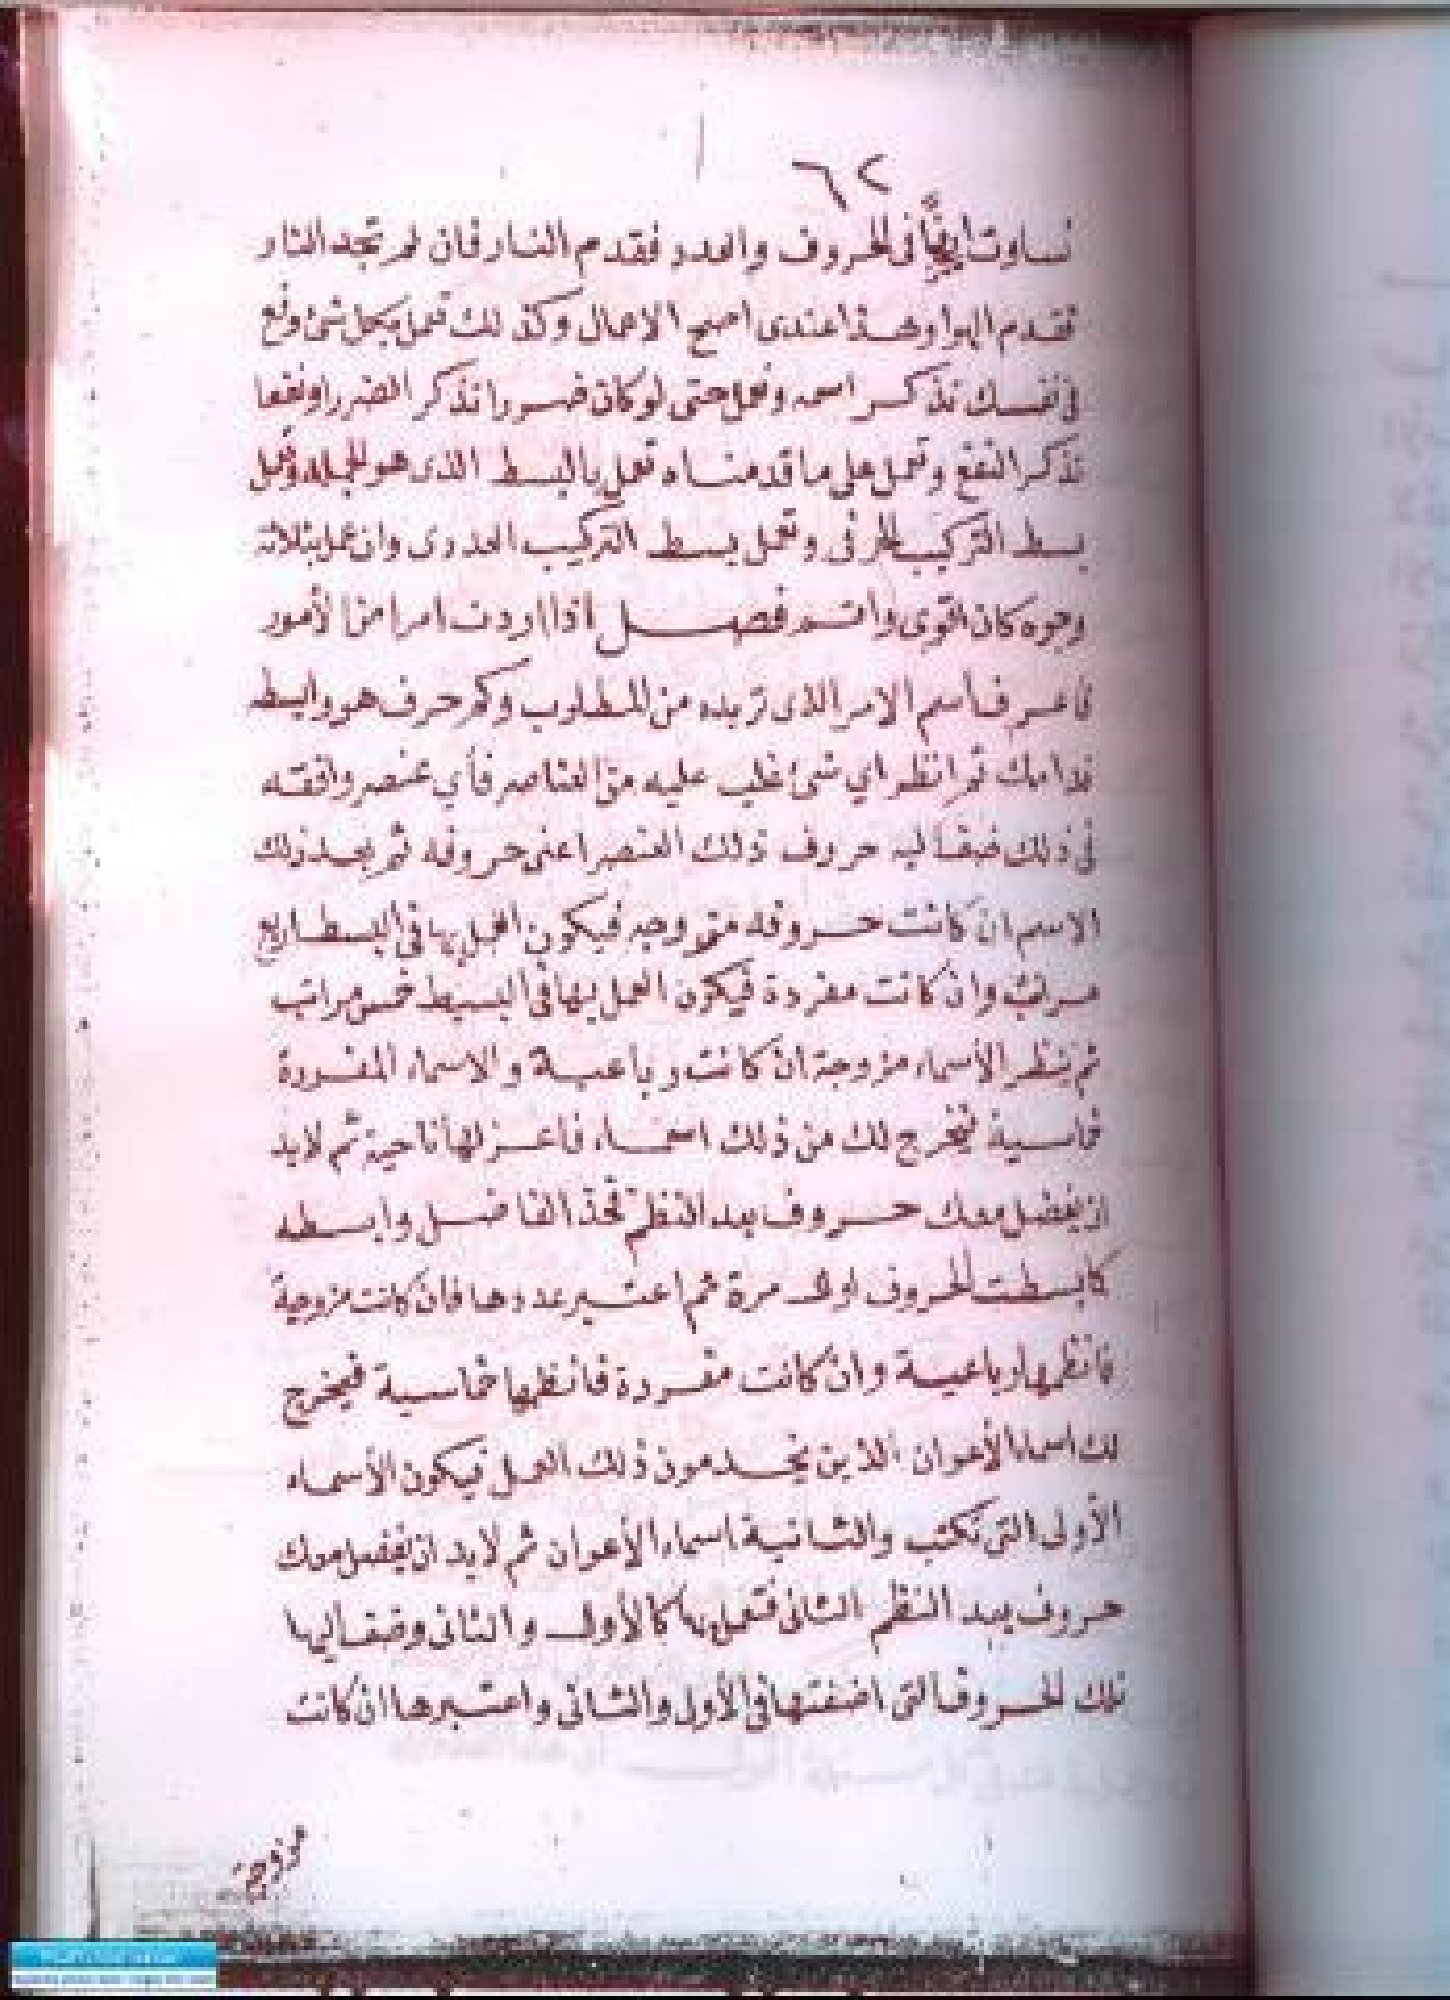 ٦٢
تساوت ايضًا فى الحروف والعدد فقدم النار فان لم تجد النار
فقدم الهوا وهذا عندى اصح الاعمال وكذلك تعمل بكل شئ وقع
فى نفسك تذكر اسمه وتعمل حتى لو كان ضررا تذكر الضرر او نفعا
تذكر النفع وتعمل على ما قدمناه تعمل بالبسط الذى هو الجمله وتعمل
بسط التركيب الحرفى وتعمل بسط التركيب العددى وان عمل بثلاثة
وجوه كان اقوى فصل اذا اردت امرا من الأمور
فاعرف اسم الامر الذى تريده من المطلوب وكم حرف هو وابسطه
قدامك ثم انظر اي شئ غلب عليه من العناصر فأي عنصر وافقه
فى ذلك فضف اليه حروف ذلك العنصر اعنى حروفه ثم بعد ذلك
الاسم ان كانت حروفه متزوجه فيكون العمل بها فى البسط اربع
مراتب وان كانت مفردة فيكون العمل بها فى البسيط خمس مراتب
ثم ينظر الأسماء مزوجة ان كانت رباعية والاسماء المفردة
خماسية فيخرج لك من ذلك اسماء فاعزلها ناحية ثم لابد
ان يفضل معك حروف بعد النظم فخذ الفاضل وابسطه
كما بسطت الحروف اول مرة ثم اعتبر عددها فان كانت مزوجة
فانظمها رباعية وان كانت مفردة فانظمها خماسية فيخرج
لك اسماء الأعوان الذين يخدمون ذلك العمل فيكون الأسماء
الأولى التى تكتب والثانية اسماء الأعوان ثم لابد ان يفضل معك
حروف بعد النظم الثانى فتعمل بها كالأول والثانى وضف اليها
تلك الحروف التى اضفتها فى الأولى والثانى واعتبرها ان كانت
مزوجة